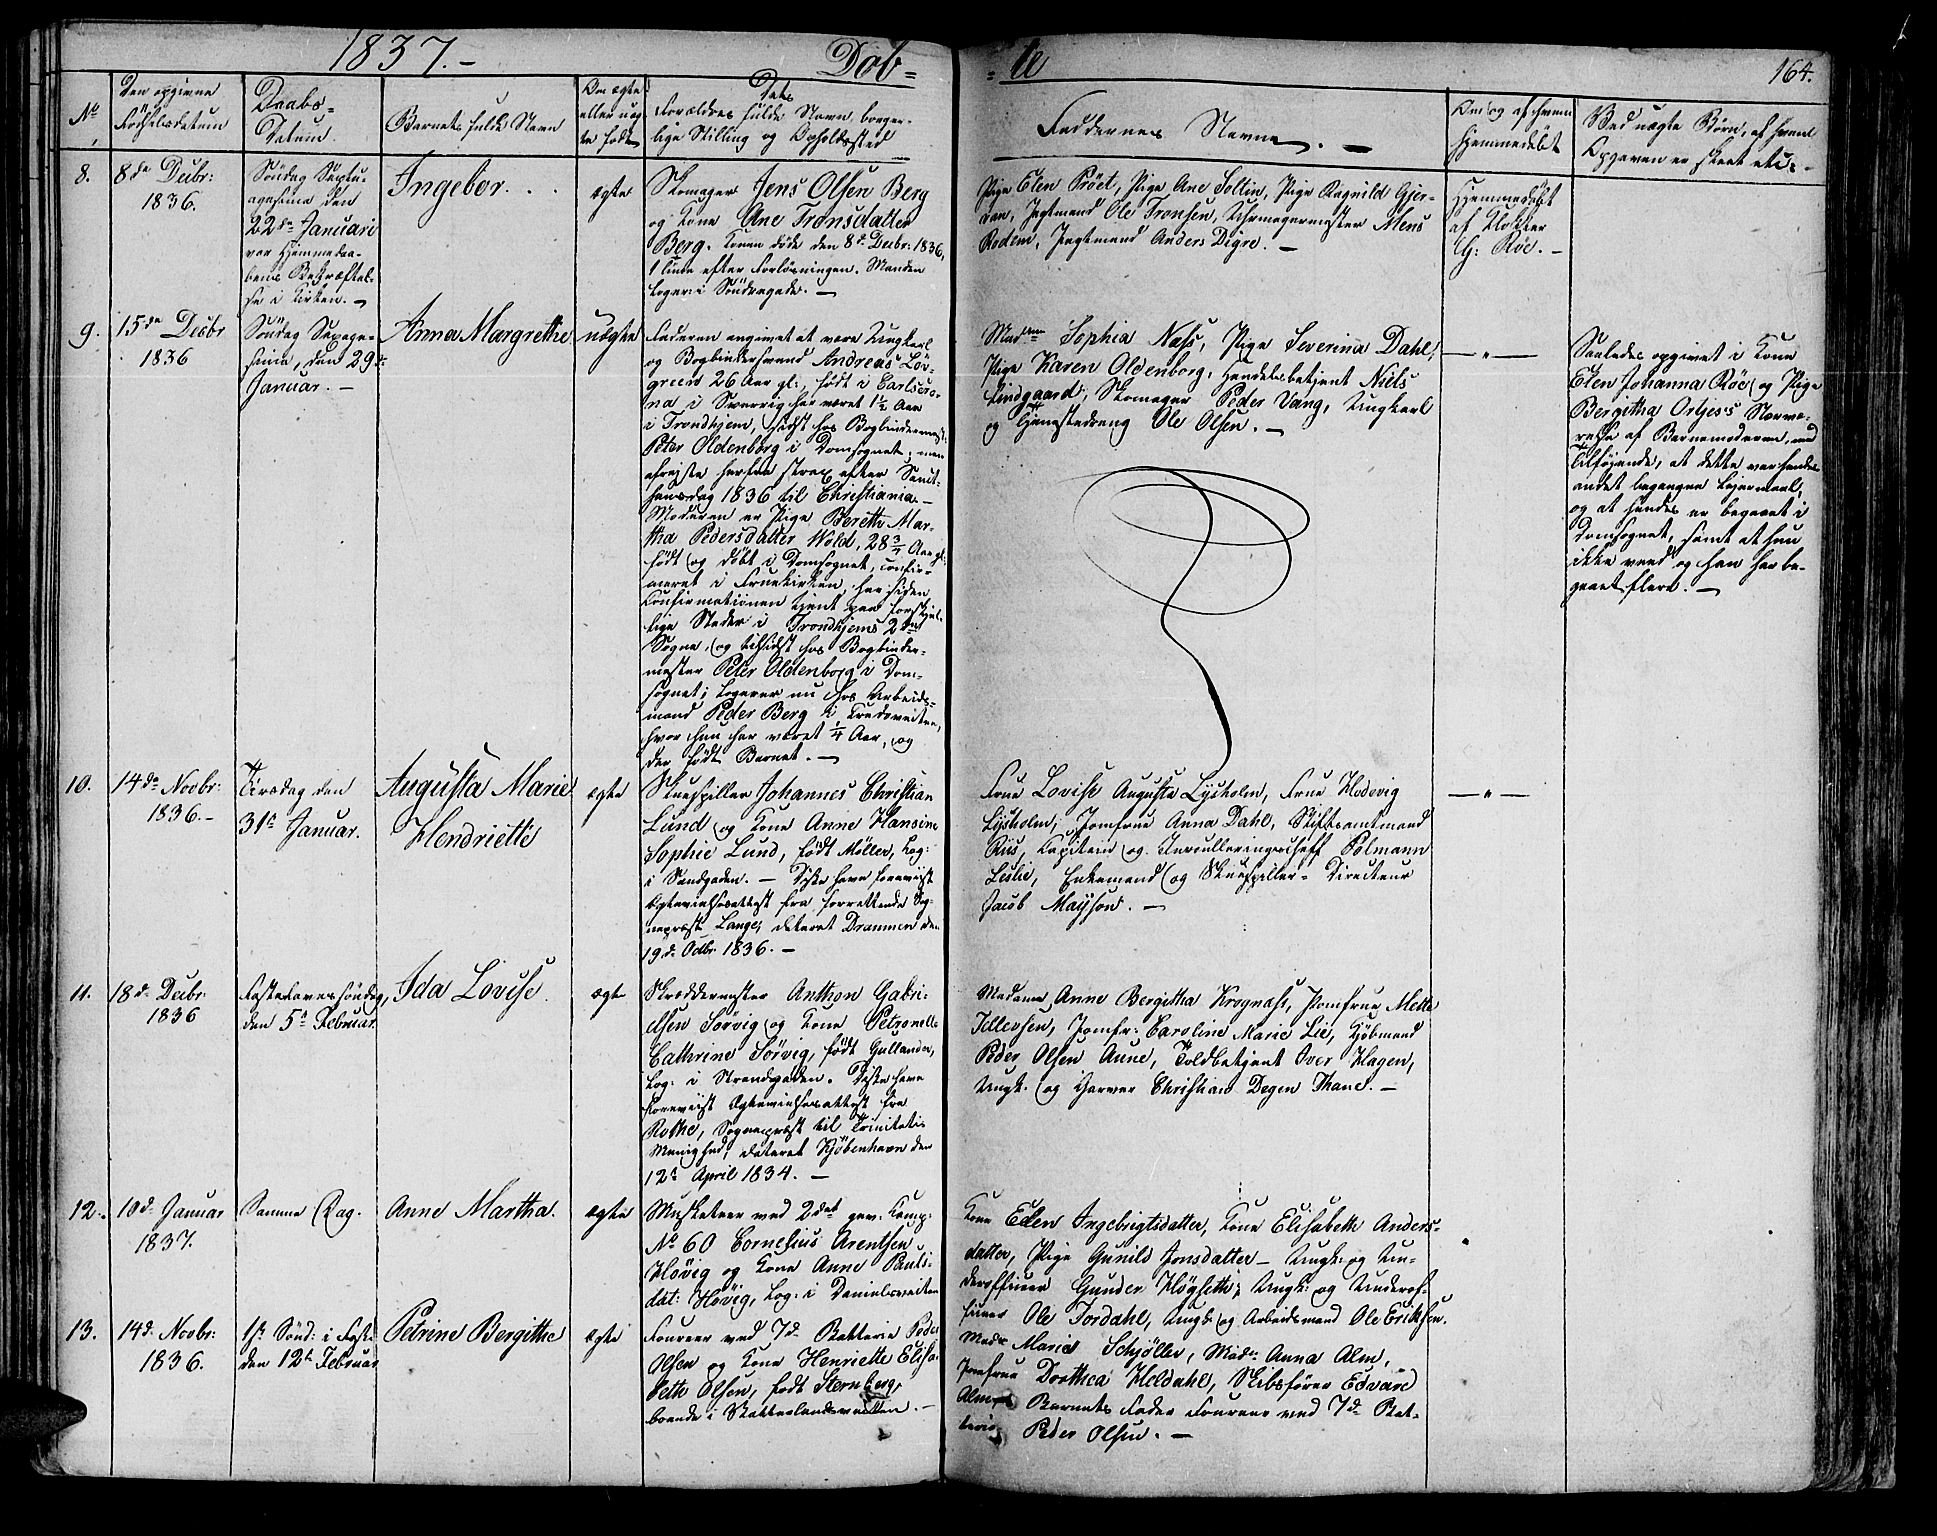 1837.-
Døb=
=te
164.
No
Den opgivne
Fødselsdatum
Daabs-
Datum.
Barnets fulde Navn
Om ægte
eller uæg-
te født
Dets
Forældres fulde Navn, borger-
lige Stilling og Opholdssted
Faddernes Navne. -
Om og af hvem
hjemmedøbt
Ved uægte Børn, af hvem
Opgaven er skeet etc: -
8.
8de Decbr:
1836.
Søndag Septu-
agesima den
22de Januari
var Hjemmedaa-
bens Bekræftel-
se i Kirken. -
Ingebor. . .
ægte
Skomager Jens Olsen Berg
og Kone Ane Trønsdatter
Berg. Konen døde den 8d. Decbr: 1836,
1 Time efter Forløsningen. Manden
Loger: i Søndregade. -
Pige Elen Prøet, Pige Ane Soltin, Pige Ragnild Gjer-
van, Jagtmand Ole Tronsen, Uhrmagermester Mens
Rodem, Jagtmand Anders Digre. -
Hjemmedøbt
af Klokker
G: Röe. -
9.
15de Decbr
1836
Søndag Sexage-
sima, den 29de
Januar. -
Anna Margrethe
uægte
Faderen angivet at være Ungkarl
og Bogbindersvend Andreas Löv-
green 26 Aar gl:, født i Carlscro-
na i Sverrig har været 1½ Aar
i Trondhjem, sidst hos Bogbindermest:
Peter Oldenborg i Domsognet; men
afreiste herfra strax efter Sanct-
hansdag 1836 til Christiania. -
Moderen er Pige Bereth Mar-
tha Pedersdatter Wold, 28¾ Aar gl:
født og döbt i Domsognet, confir-
meret i Fruekirken, har siden
Confirmationen tjent paa forskjel-
lige Steder i Trondhjems 2de
Sogne, og tilsidst hos Bogbinder-
mester Peter Oldenborg i Dom-
sognet; Logerer nu hos Arbeids-
mand Peder Berg i
hvor hun har været ¼ Aar, og
der født Barnet. -
Madme Sophia Nass, Pige Severina Dahl,
Pige Karen Oldenborg, Handelsbetjent Niels
Lindgaard, Skomager Peder Vang, Ungkarl
og Tjenestedreng Ole Olsen. -
- " -
Saaledes opgivet i Kone
Elen Johanna Röe og Pige
Bergitha Ortjes's Nærvæ-
relse af Barnemoderen, med
Tilføiende, at dette var hendes
andet begangne Leiermaal,
og at hendes er begaaet i
Domsognet, samt at hun
ikke veed og han har be-
gaaet flere. -
10.
14de Novbr:
1836.-
Tirsdag den
31te Januar.
Augusta Marie
Hendriette
ægte
Skuespiller Johannes Christian
Lund og Kone Anne Hansine
Sophie Lund, født Møller, Log:
i Sandgaden. - Disse have foreviist
Ægtevielsesattest fra forrettende Sog-
nepræst Lange, dateret Drammen den
19d. Octbr 1836. -
Frue Lovise Augusta Lysholm, Frue Hedevig
Lysholm, Jomfrue Anna Dahl, Stiftsamtmand
Riis, Capitein og Inrulleringschef Polmann
Leslie, Enkemand og Skuespiller-Directeur
Jacob Mayson. -
- " -
11.
18d. Decbr:
1836
Fastelavnssøndag,
den 5te Februar.
Ida Lovise.
ægte
Skræddermester Anthon Gabri-
elsen Sørvig og Kone Petronelle
Cathrine Sørvig, født Gullander,
Log: i Strandgaden. Disse have
foreviist Ægtevielsesattest fra
Rothe, Sognepræst til Trinitatis
Menighed, dateret Kjöbenhavn den
12te April 1834. -
Madame Anne Bergitha Krognass, Jomfrue Mette
Tellevsen, Jomfr: Caroline Marie Lie, Kjöbmand
Peder Olsen Aune, Toldbetjent Iver Hagen,
Ungk. og Garver Christian Degen Thane. -
12.
10d. Januar
1837.
Samme Dag.
Anne Martha.
ægte
Musketeer ved 2det gev: Comp:
No 60 Cornelius Arentsen
Høvig og Kone Anne Pauls-
dat: Høvig, Log: i Danielsveiten
Kone Elen Ingebrigtsdatter, Kone Elisabeth Anders-
datter, Pige Gunild Jonsdatter - Ungk: og Un-
derofficeer Gunder Høgseth, Ungk: og Underof-
ficeer Ole Jordahl, Ungk: og Arbeidsmand Ole Eriksen.
13.
14d. Novbr:
1836.
1ste Sönd: i Faste
den 12te Februar
Petrine Bergithe
ægte
Foureer ved 7d. Batterie Peder
Olsen og Kone Henriette Elisa-
beth Olsen, født Sternberg,
boende i
Made Marie Schjøller, Made: Anna Alm,
Jomfrue Dorthea Heldahl, Skibsfører Edvard
Alm, Barnets Fader Foureer ved 7d. Bat-
terie Peder Olsen. -